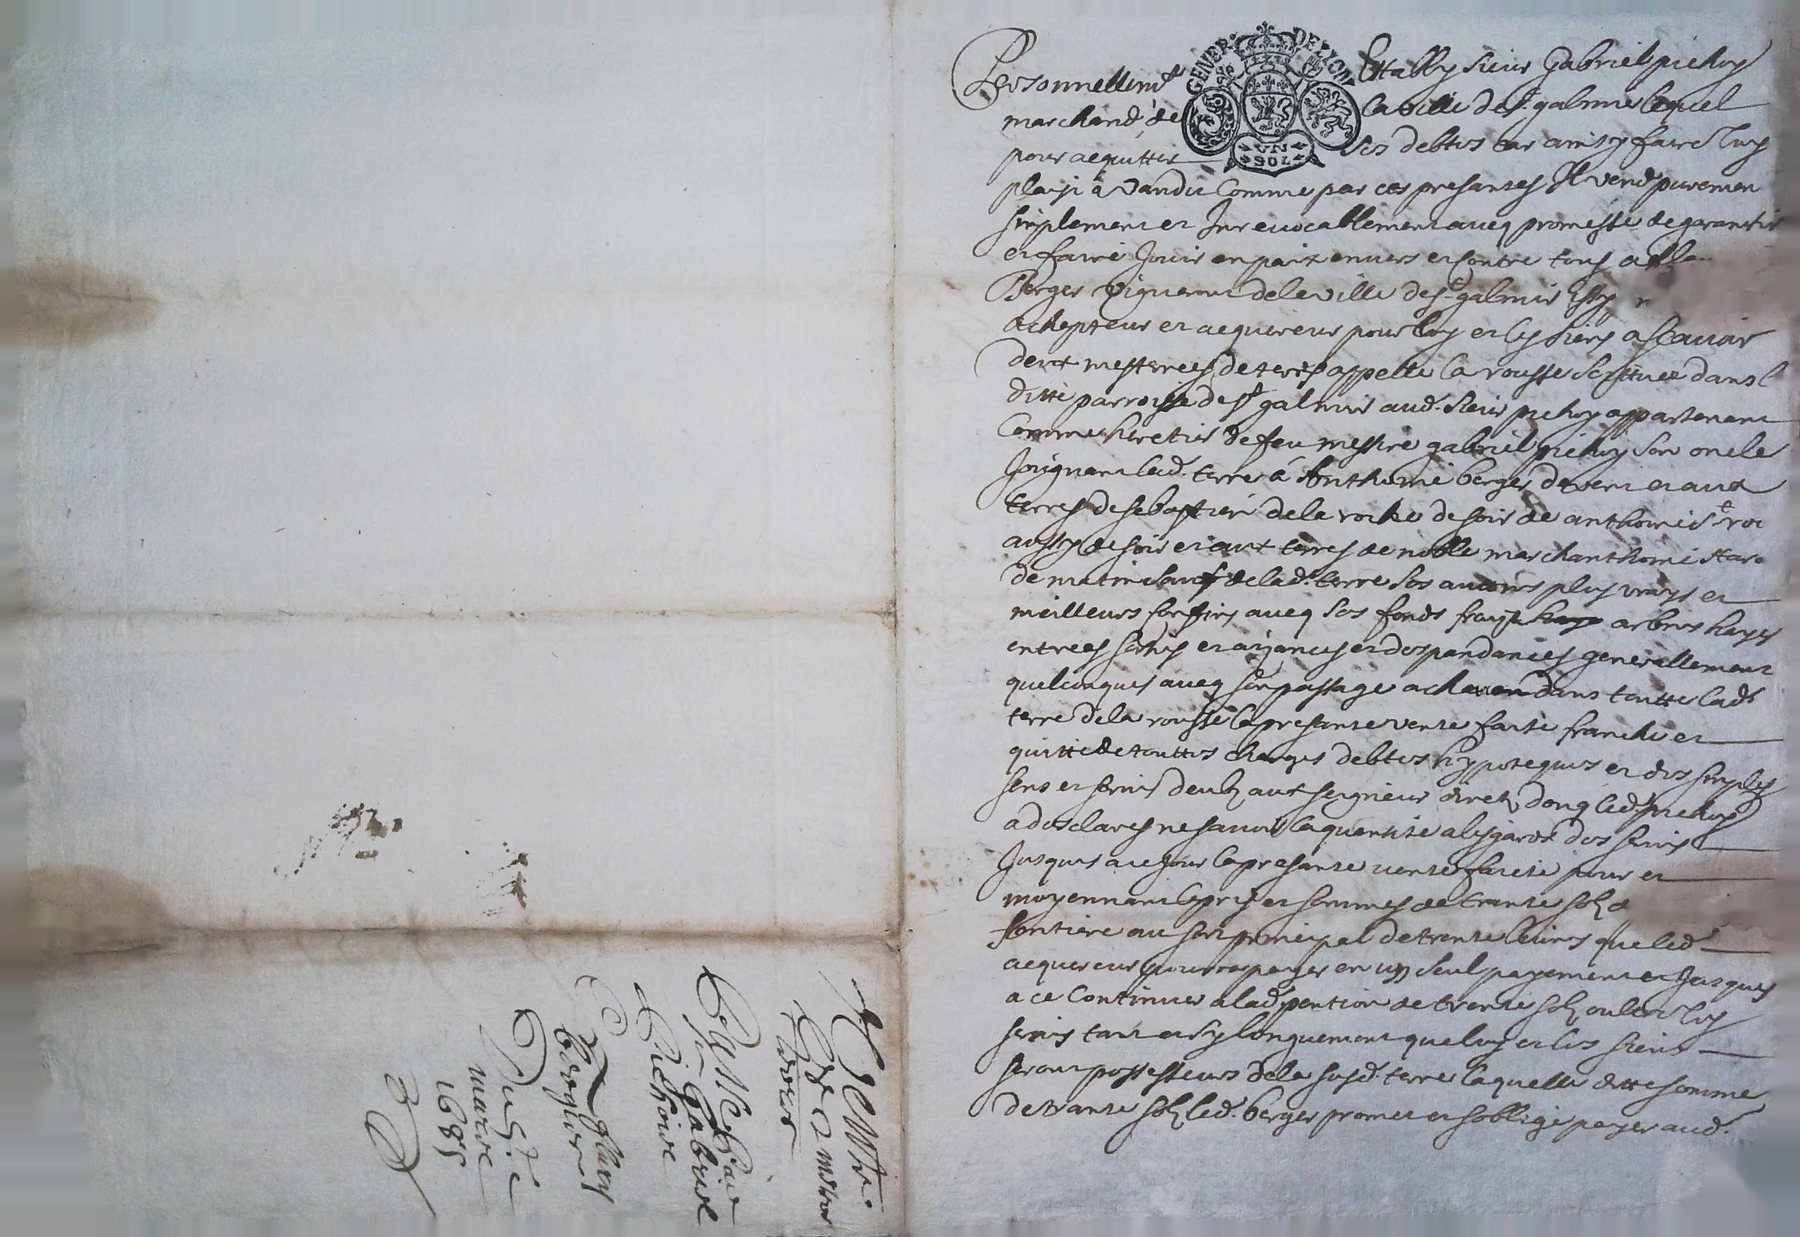 GENER. DE LYON
UN
SOL
Personnellemt Estably sieur Gabriel pichoy
marchand de la ville de st galmier lequel
pour acquitter ses debtes car ainsy faire luy
plaist à vandu comme par ces presantes Il vend purement
simplement et Inrevocablement aveq promesse de garantir
et faire Jouir en paix envers et contre tous a
Berger vigneron de la ville de st galmier Issy
achepteur et acquereur pour luy et les siens ascavoir
deux mesterees de terre appelle la rousse scittuee dans l
ditte parroisse de st galmier aud. sieur pichoy appartenant
comme heretier de feu messire gabriel pichoy son oncle
Joignant lad. terre à Anthoine berger de vent et aux
terres de sebastien de la roche de soir de anthoine
aussy de soir et aux terres de noble marc hanthoine
de matin sauf de lad. terre ses autres plus vrays et
meilleurs confins aveq ses fonds arbres hayes
entrees sorties et aizances et despandances generallement
quelconques aveq son passage a dans toutte lad.
terre de la rousse la presante vente faite franche et
quitte de touttes charges debtes hypoteques et des simples
sens et servis deubz aux seigneur direct, donq led. pichoy
a desclare ne savoir la quentite a lesgard des servis
Jusques a ce Jour la presante vente faicte pour et
moyennant le pris et sommes de trante solz d
fontiere au sort principal de trente livres que led.
acquereur pourra payer en un seul payement et Jusques
a ce continuer a lad. pention de trente solz oultre les
servis tant et sy longuement que luy et les siens
seront possesseurs de la susd. terre laquelle ditte somme
de trante solz led. berger promet et soblige payer aud.
Vente
de 2
terre
Passé par
Sr Gabriel
Pichoire
A
bergier
Du 5e
marce
1685